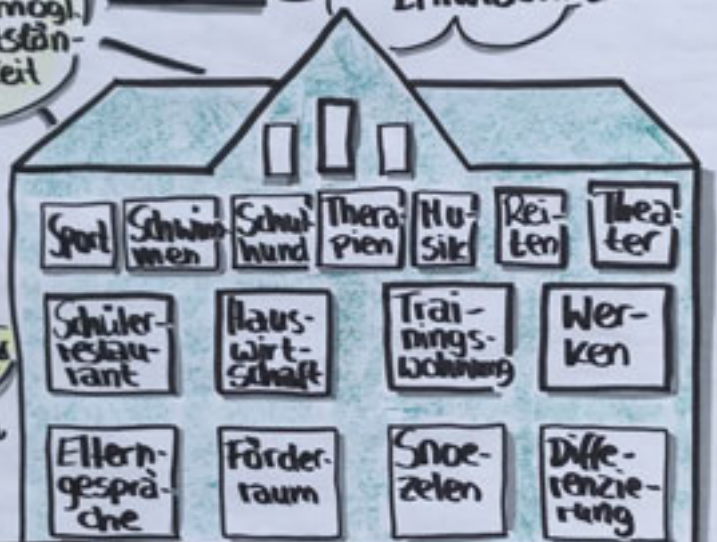 mögl.
stän-
eit
Sport
Schwim-
men
Schul-
hund
Thera-
pien
Mu-
sik
Rei-
ten
Thea-
ter
Schüler-
restau-
rant
Haus-
wirt-
schaft
Trai-
nings-
wohnung
Wer-
ken
Eltern-
gesprä-
che
Förder-
raum
Snoe-
zelen
Diffe-
renzie-
rung